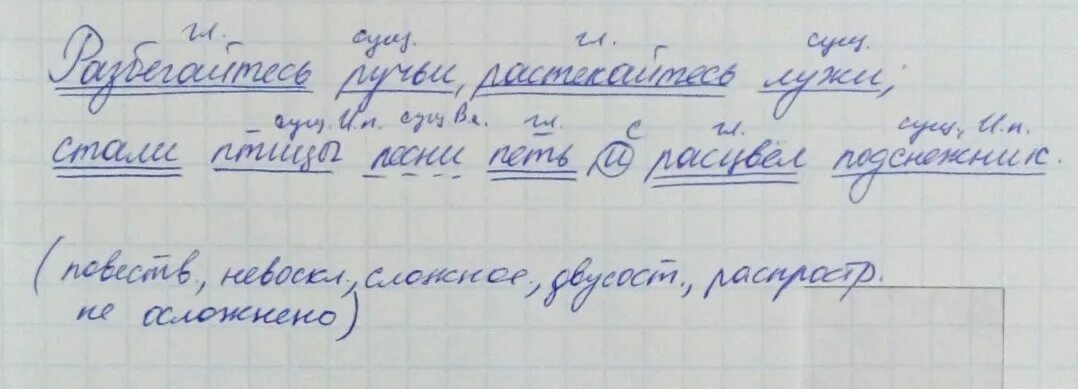 гл. сущ. гл. сущ.
Разбегайтесь ручьи, растекайтесь лужи;
сущ. И.п. сущ Вп. гл. с гл. сущ., И.п.
стали птицы песни петь и расцвёл подснежник.
(повеств., невоскл., сложное, двусост., распростр.
не осложнено)